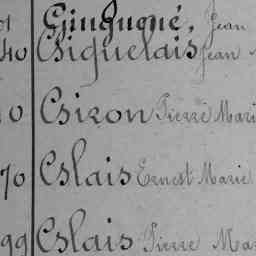 01 Ginguené, Jean
40 Giguelais Jean
0 Giron Pierre Mari
70 Glais Ernest Marie
99 Glais Pierre Ma